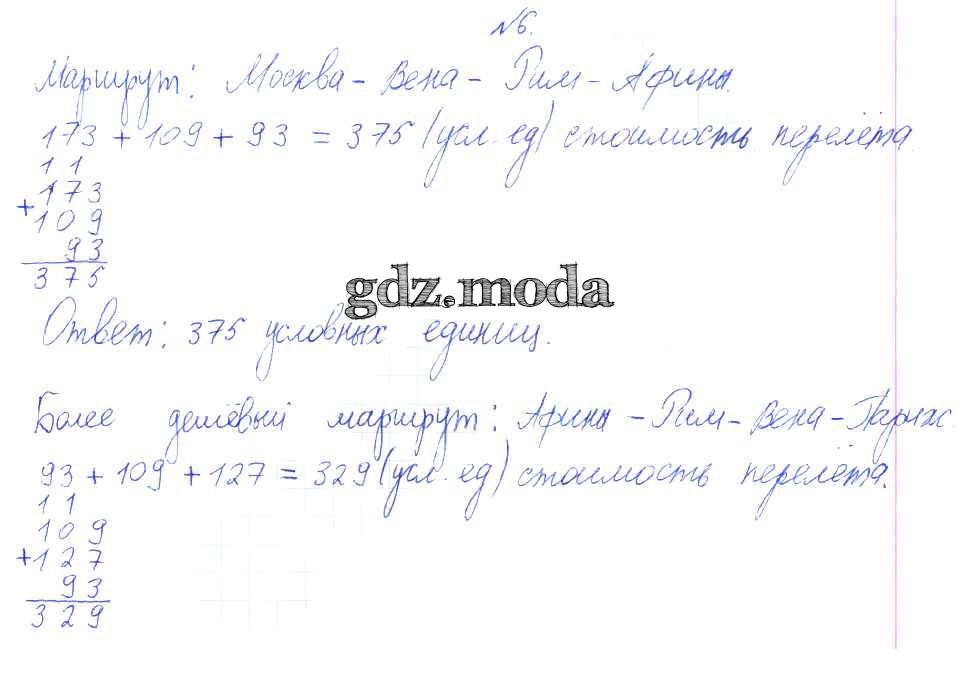 №6.
Маршрут: Москва - Вена - Рим - Афины.
173 + 109 + 93 = 375 (усл. ед) стоимость перелёта.
11
173
+ 109
93
375
gdz.moda
Ответ: 375 условных единиц.
Более дешёвый маршрут: Афины - Рим - Вена - Париж.
93 + 109 + 127 = 329 (усл. ед) стоимость перелёта.
11
109
+ 127
93
329